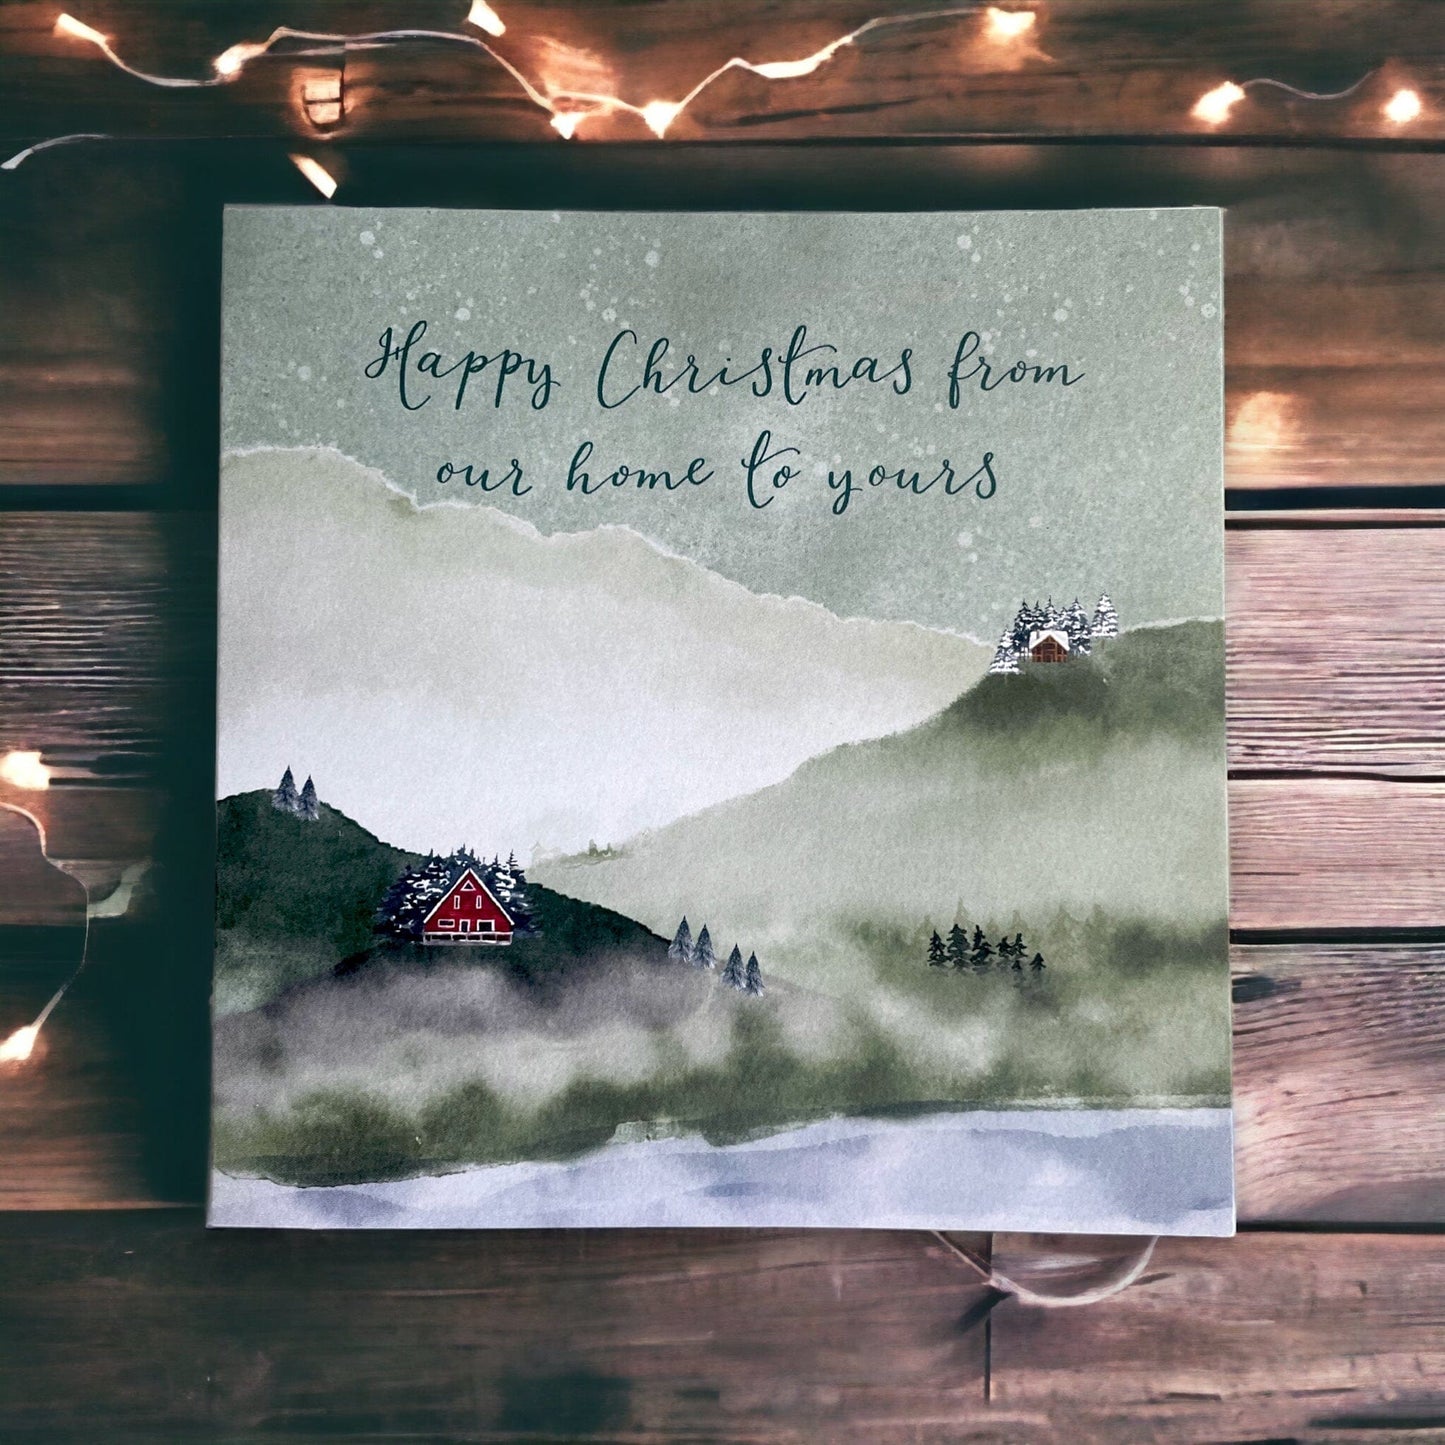 Happy Christmas from
our home to yours